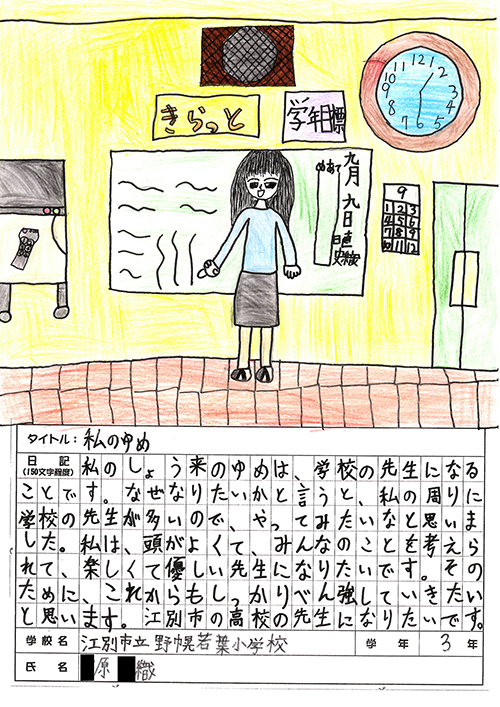 きらっと
学年目標
12
1
2
3
4
5
6
7
8
9
10
11
九月九日
めあて
日直
9
1 2 3
4 5 6
7 8 9
10 11 12
タイトル：私のゆめ
日記
(150文字程度)
私のしょう来のゆめは、学校の先生になる
ことです。なぜなりたいかと言うと、私の周りに
学校の先生が多いので、やってみたいなと思いま
した。私は、頭がよくて、みんなのことを考えら
れて、楽しくて優しい先生になりたいです。その
ために、これからもしっかりべん強していきたい
と思います。江別市の高校の先生になりたいです。
学校名 江別市立野幌若葉小学校 学年 3年
氏名 原 織